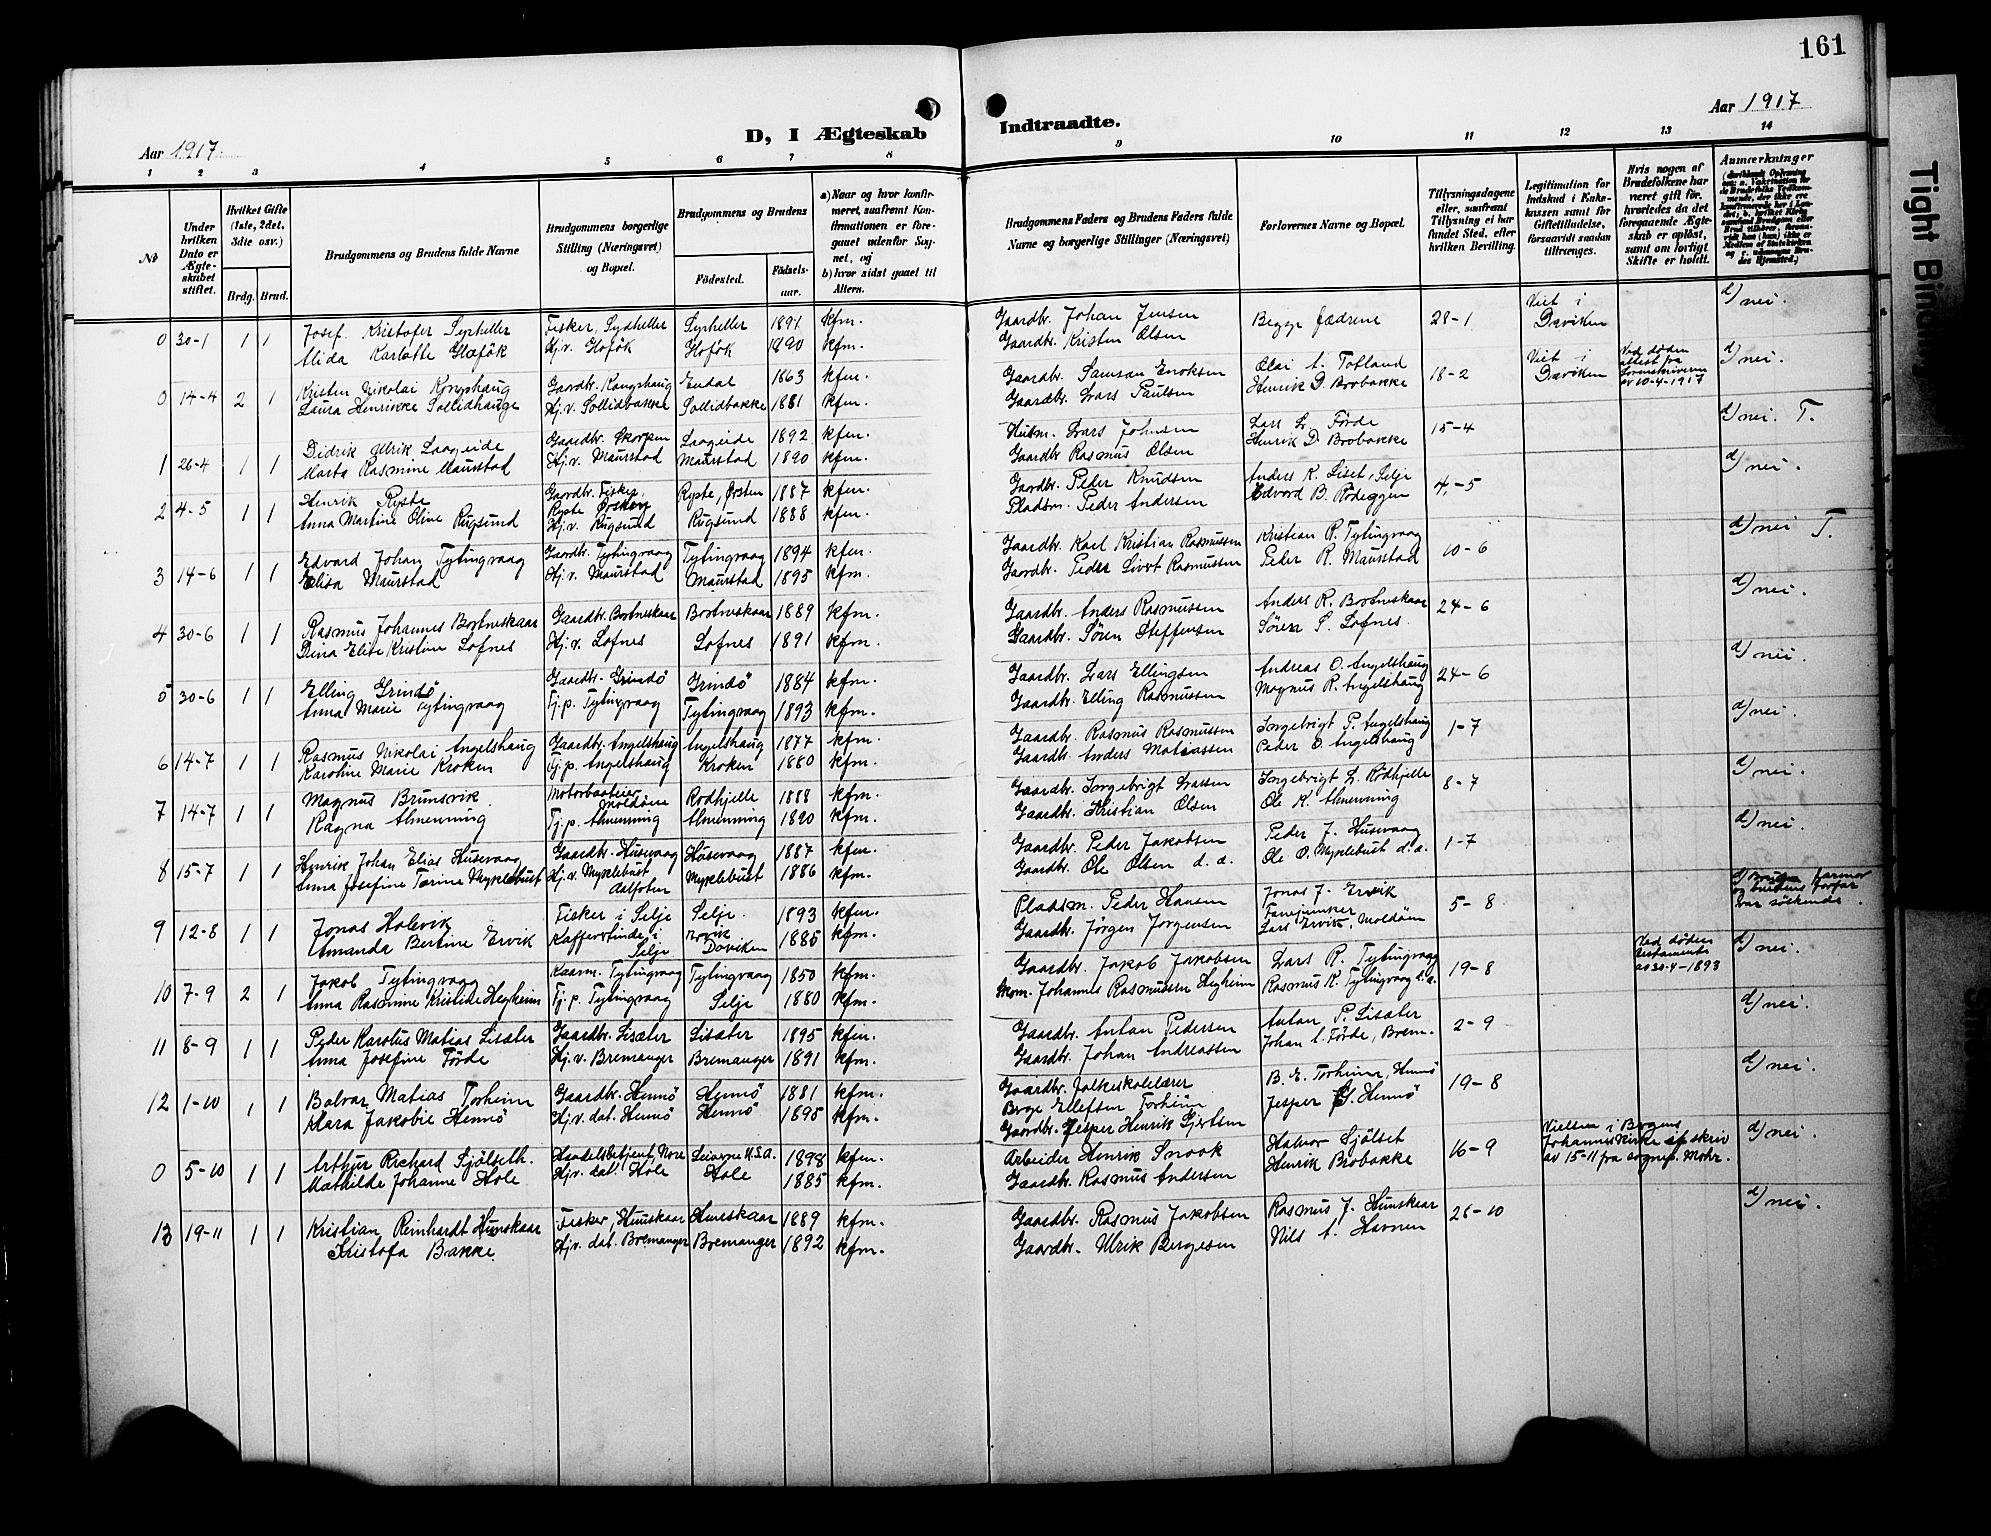 161
Aar 1917.
D, I Ægteskab
Indtraadte.
Aar 1917
1 2 3 4 5 6 7 8
9 10 11 12 13 14
№
Under hvilken Dato er Ægteskabet stiftet.
Hvilket Gifte (1ste, 2det, 3dte osv.)
Brdg. Brud.
Brudgommens og Brudens fulde Navne
Brudgommens borgerlige Stilling (Næringsvei) og Bopæl.
Brudgommens og Brudens
Födested.
Födselsaar.
a) Naar og hvor konfirmeret, saafremt Konfirmationen er foregaaet udenfor Sognet, og
b) hvor sidst gaaet til Alters.
Brudgommens Faders og Brudens Faders fulde Navne og borgerlige Stillinger (Næringsvei)
Forlovernes Navne og Bopæl.
Tillysningsdagene eller, saafremt Tillysning ei har fundet Sted, efter hvilken Bevilling.
Legitimation for Indskud i Enkekassen samt for Giftetilladelse, forsaavidt saadan tiltrænges.
Hvis nogen af Brudefolkene har været gift för, hvorledes da det foregaaende Ægteskab er oplöst, samt om lovligt Skifte er holdt.
Anmærkninger
0 30-1 1 1 Josef Kristofer Syrheller Fisker, Sydheller Syrheller 1891 kfm. Gaardbr. Johan Jensen Begge fædrene 28-1 Viet i Daviken d/ nei.
Alida Karlotte Hj.v. 1890 kfm. Gaardbr. Kristen Olsen
0 14-4 2 1 Kristen Nikolai Kongshaug Gardbr. Kongshaug Endal 1863 kfm. Gaardbr. Samson Enoksen Olai A. Tofland 18-2 Viet i Daviken Ved døden attest fra Sorenskriveren av 10-4-1917 d/ nei.
Laura Henrikke Sollidhauge Hj.v. Sollidbakke Sollidbakke 1881 kfm. Gaardbr. Lars Paulsen Henrik D. Brobakke
1 26-4 1 1 Didrik Ulrik Laageide Gaardbr. Skorpen Laageide 1892 kfm. Husm. Lars Johnsen Lars L. Förde 15-4 d/ nei. T.
Marta Rasmine Maurstad Hj.v. Maurstad Maurstad 1890 kfm. Gaardbr. Rasmus Olsen Henrik D. Brobakke
2 4-5 1 1 Henrik Ryste Gaardbr. Fisker Ryste Ørsten Ryste, Ørsten 1887 kfm. Gardbr. Peder Knudsen Anders K. Liset, Selje 4-5 d/ nei.
Anna Martine Oline Rugsund Hj.v. Rugsund Rugsund 1888 kfm. Pladsm. Peder Andersen Edvard B. Rödeggen
3 14-6 1 1 Edvard Johan Tytingvaag Gaardbr. Tytingvaag Tytingvaag 1894 kfm. Gaardbr. Karl Kristian Rasmussen Kristian R. Tytingvaag 10-6 d/ nei T.
Elisa Maurstad Hj.v. Maurstad Maurstad 1895 kfm. Gaardbr. Peder Rasmussen Peder R. Maurstad
4 30-6 1 1 Rasmus Johannes Bortneskaar Gaardbr. Bortneskaar Bortneskaar 1889 kfm. Gaardbr. Anders Rasmussen Anders R. Bortneskaar 24-6 d/ nei.
Dina Elise Kristine Lofnes Hj.v. Lofnes Lofnes 1891 kfm. Gaardbr. Søren Steffensen Sören S. Lofnes.
5 30-6 1 1 Elling Grindö Gaardbr. Grindö Grindö 1884 kfm. Gaardbr. Lars Ellingsen Andreas O. Angelshaug 24-6 d/ nei.
Anna Marie Tytingvaag Tj.p. Tytingvaag Tytingvaag 1893 kfm. Gaardbr. Elling Rasmussen Magnus R. Angelshaug
6 14-7 1 1 Rasmus Nikolai Angelshaug Gaardbr. Angelshaug Angelshaug 1877 kfm. Gaardbr. Rasmus Rasmussen Ingebrigt P. Angelshaug 1-7 d/ nei.
Karoline Marie Kroken Tj.p. Angelshaug Kroken 1880 kfm. Gaardb. Anders Matiassen Peder O. Angelshaug
7 14-7 1 1 Magnus Brunsvik Motorbaateier Moldöen Rodhjelle 1888 kfm. Gaardbr. Ingebrigt Larsen Ingebrigt L. Rodhjelle 8-7 d/ nei.
Ragna Almenning Tj.p. Almenning Almenning 1890 kfm. Gaardbr. Kristian Olsen Ole K. Almenning
8 15-7 1 1 Henrik Johan Elias Husevaag Gaardbr. Husevaag Husevaag 1887 kfm. Gaardbr. Peder Jakobsen Peder J. Husevaag 1-7 d/ nei.
Anna Josefine Tarine Myklebust Hj.v. Myklebust dalfoten Myklebust 1886 kfm. Gaardbr. Ole Olsen d.a. Ole O. Myklebust d.a.
9 12-8 1 1 Jonas Halsvik Fisker i Selje Selje. 1893 kfm. Pladsm. Peder Hansen Jonas J. Ervik Fanejunker 5-8 farmor og brudens forfar var søskende.
Amanda Bertine Ervik Kaffevertinde i Selje Ervik Daviken 1885 kfm. Gaardbr. Jørgen Jørgensen Lars Ervik, Moldöen
10 7-9 2 1 Jakob Tytingvaag Kaarm. Tytingvaag Tytingvaag 1850 kfm. Gaardbr. Jakob Jakobsen Lars R. Tytingvaag 19-8 Ved døden testamente av 30-4-1893 d/ nei.
Anna Rasmine Kristine Hegheim Tj.p. Tytingvaag Selje 1880 kfm. Johannes Rasmussen Hegheim Rasmus R. Tytingvaag d.a.
11 8-9 1 1 Peder Karolus Matias Lisæter Gaardbr. Lisæter Lisæter 1895 kfm. Gaardbr. Anton Pedersen Anton P. Lisæter 2-9 d/ nei.
Anna Josefine Förde Hj.v. Bremanger Bremanger 1891 kfm. Gaardbr. Johan Andreassen Johan C. Förde, Brem.
12 1-10 1 1 Bolvar Matias Torheim Gaardbr. Hennö Hennö 1881 kfm. Gaardbr. Folkeskolelærer Berge Ellefsen Torheim B. E. Torheim, Hennö 19-8 d/ nei.
Mara Jakobie Hennö Hj.v. dat. Hennö Hennö 1895 kfm. Gaardbr. Jesper Henrik Gjertsen Jesper G. Hennö
0 5-10 1 1 Arthur Richard Sjölseth. Handelsbetjent, More U.S.A. 1898 kfm. Arbeider Henrik Snook Halvor Sjölset 16-9 Vielsen i Bergens Johanneskirke av 15-11 fra sognep. Mohr. d/ nei.
Mathilde Johanne Hole Hj.v. dat. Hole Hole 1885 kfm. Gaardbr. Rasmus Andersen Henrik Brobakke
13 19-11 1 1 Kristian Reinhardt Hunskaar Fisker, Hunskaar Hunskaar 1889 kfm. Gaardbr. Rasmus Jakobsen Rasmus J. Hunskaar 28-10 d/ nei.
Kristofa Bakke. Hj.v. dat. Bremanger Bremanger 1892 kfm. Gaardbr. Ulrik Bergesen Nils A. Havnen
Tight Bindin